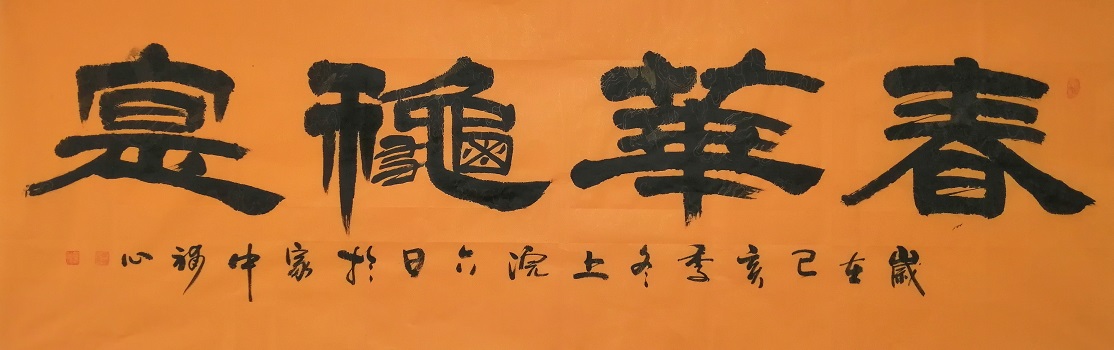 春華龝寔
歲在己亥季冬上浣六日於家中心